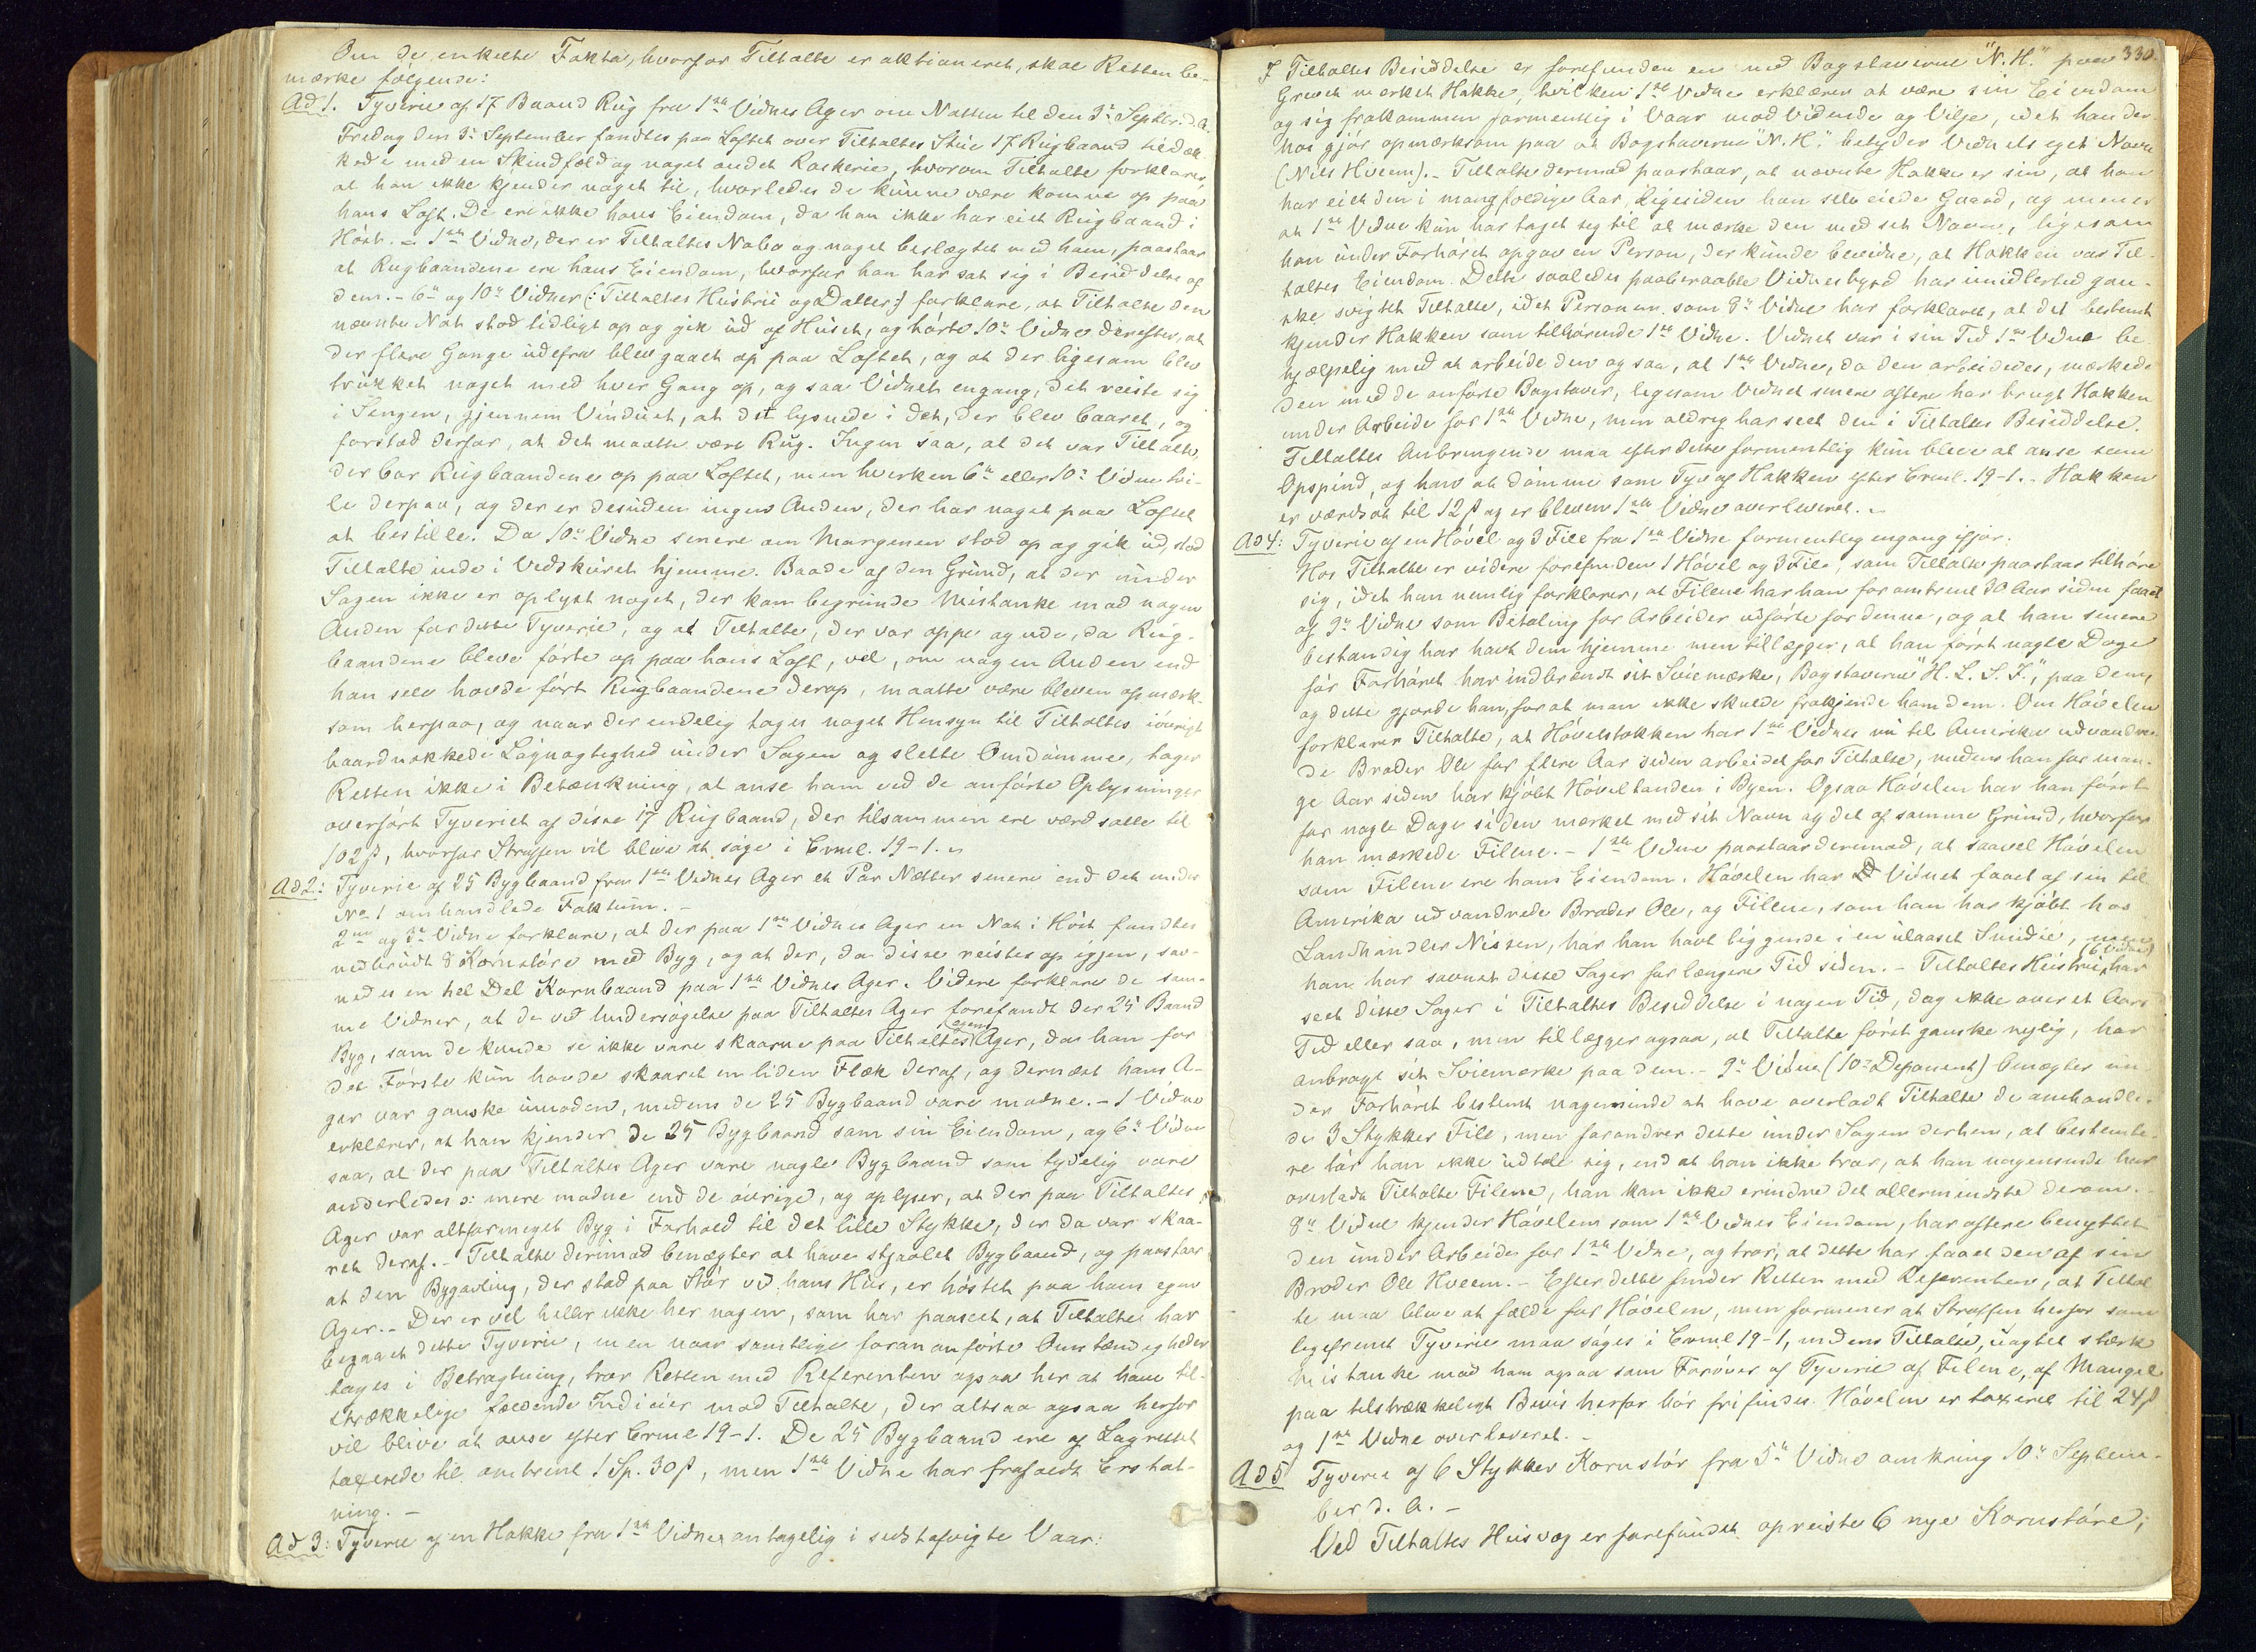 Om de enkelte Fakta, hvorfor Tiltalte er aktioneret, skal Retten be-
mærke følgende:
Ad 1. Tyverie af 17 Baand Rug fra 1ste Vidnes Ager om Natten til den 3die Septbr. d. A.
Fredag den 3die September fandtes paa Loftet over Tiltaltes Stue 17 Rugbaand tildæk-
kede med en Skindfæld og noget andet Raskerie, hvorom Tiltalte forklarer,
at han ikke kjender noget til, hvorledes de kunne være komne op paa
hans Loft. De ere ikke hans Eiendom, da han ikke har eiet Rugbaand i
Høst. – 1ste Vidne, der er Tiltaltes Nabo og noget beslægtet med ham, paastaar
at Rugbaandene ere hans Eiendom, hvorfor han har sat sig i Besiddelse af
dem. – 6te og 10de Vidner (: Tiltaltes Hustrue og Datter :) forklare, at Tiltalte den
nævnte Nat stod tidligt op og gik ud af Huset, og hørte 10de Vidne derefter, at
der flere Gange udefra blev gaaet op paa Loftet, og at der ligesom blev
trukket noget med hver Gang op, og saa Vidnet engang, det reiste sig
i Sengen, gjennem Vinduet, at det lysnede i det, der blev baaret, og
forstod derfor, at det maatte være Rug. Ingen saa, at det var Tiltalte,
der bar Rugbaandene op paa Loftet, men hverken 6te eller 10de Vidne tvi-
le derpaa, og der er desuden ingen Anden, der har noget paa Loftet
at bestille. Da 10de Vidne senere om Morgenen stod op og gik ud, stod
Tiltalte inde i Vedskuret hjemme. Baade af den Grund, at der under
Sagen ikke er oplyst noget, der kan begrunde Mistanke mod nogen
Anden for dette Tyverie, og at Tiltalte, der var oppe og ude, da Rug-
baandene bleve førte op paa hans Loft, vel, om nogen Anden end
han selv havde ført Rugbaandene derop, maatte være bleven opmærk-
som herpaa, og naar der endelig tages noget Hensyn til Tiltaltes iøvrigt
haardnakkede Løgnagtighed under Sagen og slette Omdømme, tager
Retten ikke i Betænkning, at anse ham ved de anførte Oplysninger
overført Tyveriet af disse 17 Rugbaand, der tilsammen ere værdsatte til
102 ß, hvorfor Straffen vil blive at søge i Crml. 19-1. –
Ad 2: Tyverie af 25 Bygbaand fra 1ste Vidnes Ager et Par Nætter senere end det under
No 1 omhandlede Faktum. –
2det og 3die Vidne forklare, at der paa 1ste Vidnes Ager en Nat i Høst fandtes
nedbrudt 8 Kornstøre med Byg, og at der, da disse reistes op igjen, sav-
nedes en hel Del Kornbaand paa 1ste Vidnes Ager. Videre forklare de sam-
me Vidner, at de ved Undersøgelse paa Tiltaltes Ager forefandt der 25 Baand
Byg, som de kunde se ikke vare skaarne paa Tiltaltes egen Ager, da han for
det Første kun havde skaaret en liden Flæk deraf, og dernæst hans A-
ger var ganske umoden, medens de 25 Bygbaand vare modne. – 1 Vidne
erklærer, at han kjender de 25 Bygbaand som sin Eiendom, og 6te Vidne
saa, at der paa Tiltaltes Ager vare nogle Bygbaand som tydelig vare
anderledes ɔ: mere modne end de øvrige, og oplyser, at der paa Tiltaltes
Ager var altformeget Byg i Forhold til det lille Stykke, der da var skaa-
ret deraf. – Tiltalte derimod benægter at have stjaalet Bygbaand, og paastaar,
at den Bygavling, der stod paa Stør ved hans Hus, er høstet paa hans egen
Ager. – Der er vel heller ikke her nogen, som har paaseet, at Tiltalte har
begaaet dette Tyverie, men naar samtlige foran anførte Omstændigheder
tages i Betragtning, tror Retten med Referenten ogsaa her at have til-
strækkelige fældende Indicier mod Tiltalte, der altsaa ogsaa herfor
vil blive at anse efter Crml 19-1. De 25 Bygbaand ere af Lagrettet
taxerede til omtrent 1 Sp. 30 ß, men 1ste Vidne har frafaldt Erstat-
ning. –
Ad 3: Tyverie af en Hakke fra 1ste Vidne antagelig i sidstafvigte Vaar:
330.
I Tiltaltes Besiddelse er forefunden en med Bogstaverne "N. H." paa
Grevet mærket Hakke, hvilken 1ste Vidne erklærer at være sin Eiendom
og sig frakommen formentlig i Vaar mod Vidende og Vilje, idet han der-
hos gjør opmærksom paa at Bogstaverne "N. H." betyder Vidnets eget Navn
(Nils Hveem). – Tiltalte derimod paastaar, at nævnte Hakke er sin, at han
har eiet den i mangfoldige Aar, ligesiden han selv eiede Gaard, og mener
at 1ste Vidne kun har taget sig til at mærke den med sit Navn, ligesom
han under Forhøret opgav en Person, der kunde bevidne, at Hakken var Til-
taltes Eiendom. Dette saaledes paaberaabte Vidnesbyrd har imidlertid gan-
ske svigtet Tiltalte, idet Personen som 8de Vidne har forklaret, at det bestemt
kjender Hakken som tilhørende 1ste Vidne. Vidnet var i sin Tid 1ste Vidne be-
hjælpelig med at arbeide den og saa, at 1ste Vidne, da den arbeidedes, mærkede
den med de anførte Bogstaver, ligesom Vidnet senere oftere har brugt Hakken
under Arbeide for 1ste Vidne, men aldrig har seet den i Tiltaltes Besiddelse.
Tiltaltes Anbringende maa efter dette formentlig kun blive at anse som
Opspind, og han at dømme som Tyv af Hakken efter Crml. 19-1. – Hakken
er værdsat til 12 ß og er bleven 1ste Vidne overleveret. –
Ad 4: Tyverie af en Høvel og 3 File fra 1ste Vidne formentlig engang ifjor.
Hos Tiltalte er videre forefunden 1 Høvel og 3 File, som Tiltalte paastaar tilhøre
sig, idet han nemlig forklarer, at Filene har han for omtrent 30 Aar siden faaet
af 9de Vidne som Betaling for Arbeider udførte for denne, og at han senere
bestandig har havt dem hjemme men tillægger, at han først nogle Dage
før Forhøret har indbrændt sit Sviemærke, Bogstaverne "H. L. S. F.", paa dem,
og dette gjorde han, for at man ikke skulde frakjende ham dem. Om Høvelen
forklarer Tiltalte, at Høvelstokken har 1ste Vidnes nu til Amerika udvandre-
de Broder Ole for flere Aar siden arbeidet for Tiltalte, medens han for man-
ge Aar siden har kjøbt Høveltanden i Byen. Ogsaa Høvelen har han først
for nogle Dage siden mærket med sit Navn og det af samme Grund, hvorfor
han mærkede Filene. – 1ste Vidne paastaar derimod, at saavel Høvelen
som Filene ere hans Eiendom. Høvelen har Vidnet faaet af sin til
Amerika udvandrede Broder Ole, og Filene, som han har kjøbt hos
Landhandler Nissen, har han havt liggende i en ulaaset Smidie, men
han har savnet disse Sager for længere Tid siden. – Tiltaltes Hustrue (6 Vidne) har
seet disse Sager i Tiltaltes Besiddelse i nogen Tid, dog ikke over et Aars
Tid eller saa, men tillægger ogsaa, at Tiltalte først ganske nylig, har
anbragt sit Sviemærke paa dem. – 9de Vidne (10de Deponent) benægter un-
der Forhøret bestemt nogensinde at have overladt Tiltalte de omhandle-
de 3 Stykker File, men forandrer dette under Sagen derhen, at bestemte-
re tør han ikke udtale sig, end at han ikke tror, at han nogensinde har
overladt Tiltalte Filene, han kan ikke erindre det allermindste derom. –
8de Vidne kjender Høvelen som 1ste Vidnes Eiendom, har oftere benyttet
den under Arbeide for 1ste Vidne, og tror, at dette har faaet den af sin
Broder Ole Hveem. – Efter dette finder Retten med Referenten, at Tiltal-
te maa blive at fælde for Høvelen, men formener at Straffen herfor som
ligefremt Tyverie maa søges i Crml 19-1, medens Tiltalte, uagtet stærk
Mistanke mod ham ogsaa som Forøver af Tyverie af Filene, af Mangel
paa tilstrækkeligt Bevis herfor bør frifindes. Høvelen er taxeret til 24 ß
og 1ste Vidne overleveret. –
Ad 5 Tyverie af 6 Stykker Kornstør fra 5te Vidne omkring 10de Septem-
ber d. A. –
Ved Tiltaltes Husvæg er forefundet opreiste 6 nye Kornstøre;